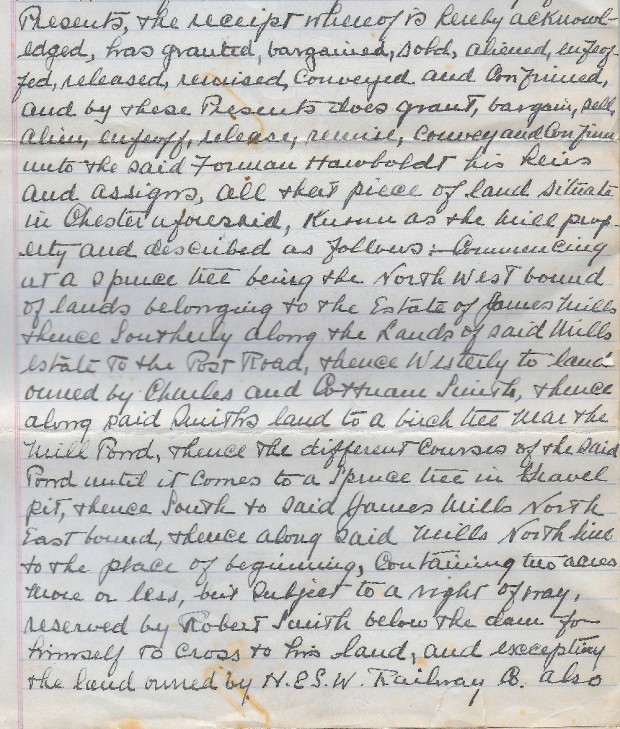 Presents, the receipt whereof is hereby acknowl-
edged, has granted, bargained, sold, aliened, enfeof-
fed, released, remised, Conveyed and Confirmed,
and by these Presents does grant, bargain, sell,
alien, enfeoff, release, remise, Convey and Confirm
unto the said Forman Hawboldt his heirs
and assigns, all that piece of land situate
in Chester aforesaid, Known as the Mill prop-
erty and described as follows:- Commencing
at a Spruce tree being the North West bound
of lands belonging to the Estate of James Mills
thence Southerly along the Lands of said Mills
estate to the Post Road, thence Westerly to land
owned by Charles and Smith, thence
along said Smiths land to a birch tree near the
Mill Pond, thence the different Courses of the said
Pond until it Comes to a Spruce tree in Gravel
pit, thence South to said James Mills North
East bound, thence along said Mills North line
to the place of beginning, Containing two acres
more or less, but Subject to a right of way,
reserved by Robert Smith below the dam for
himself to Cross to his land, and excepting
the land owned by H. & S. W. Railway Co. also